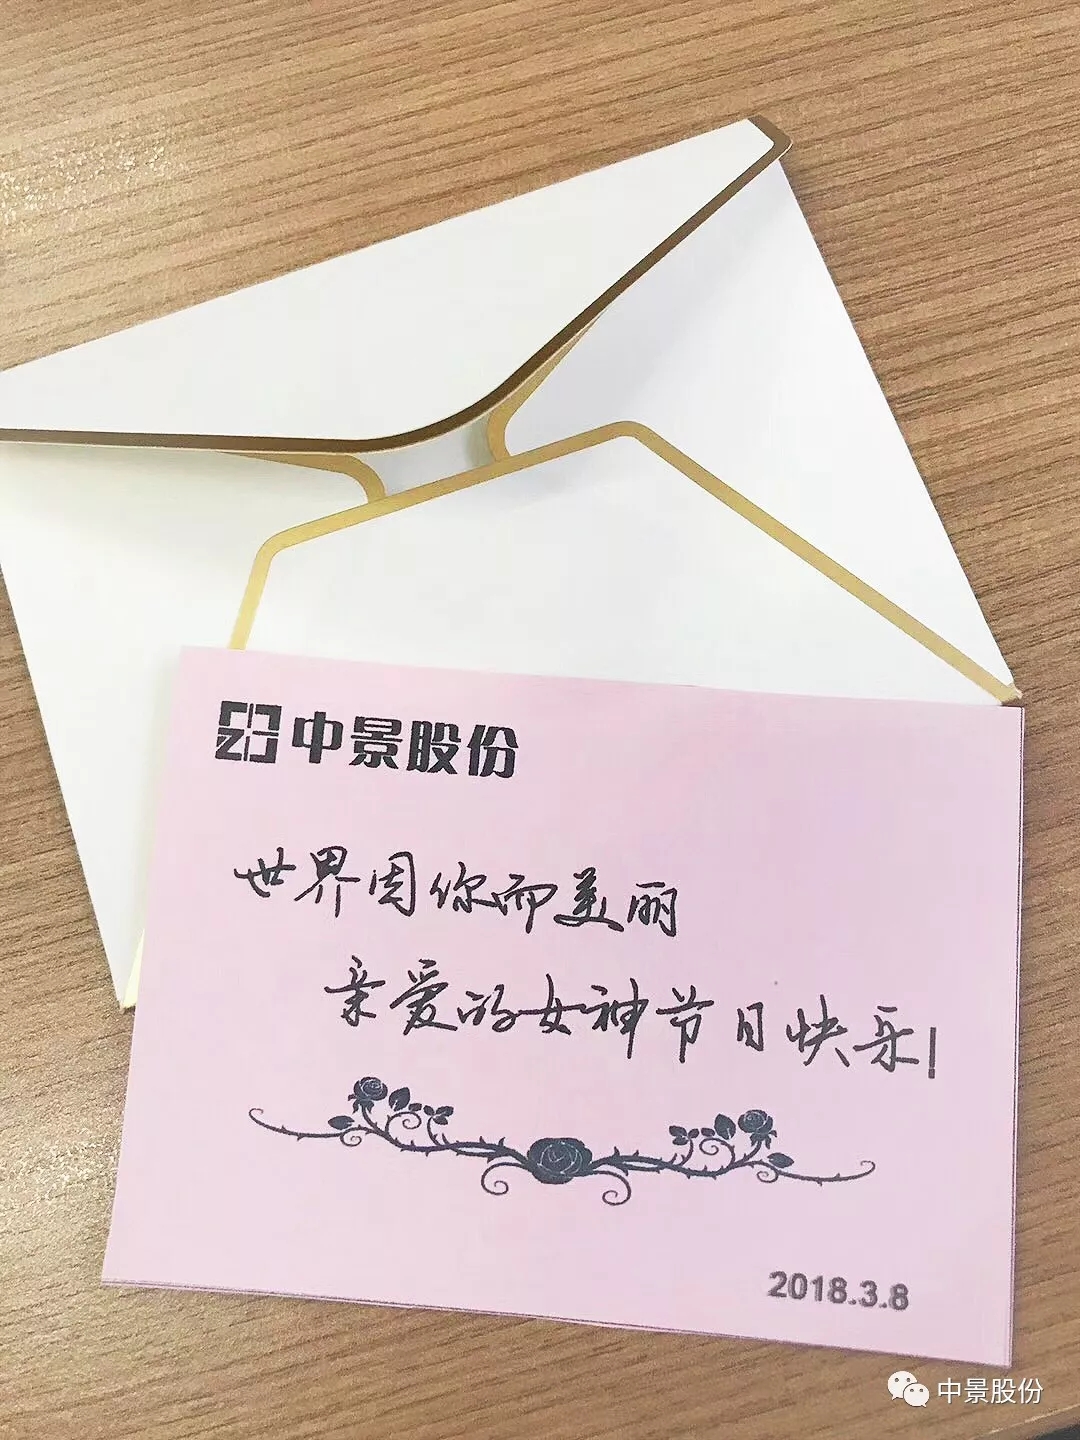 中景股份
世界因你而美丽
亲爱的女神节日快乐!
2018.3.8
中景股份